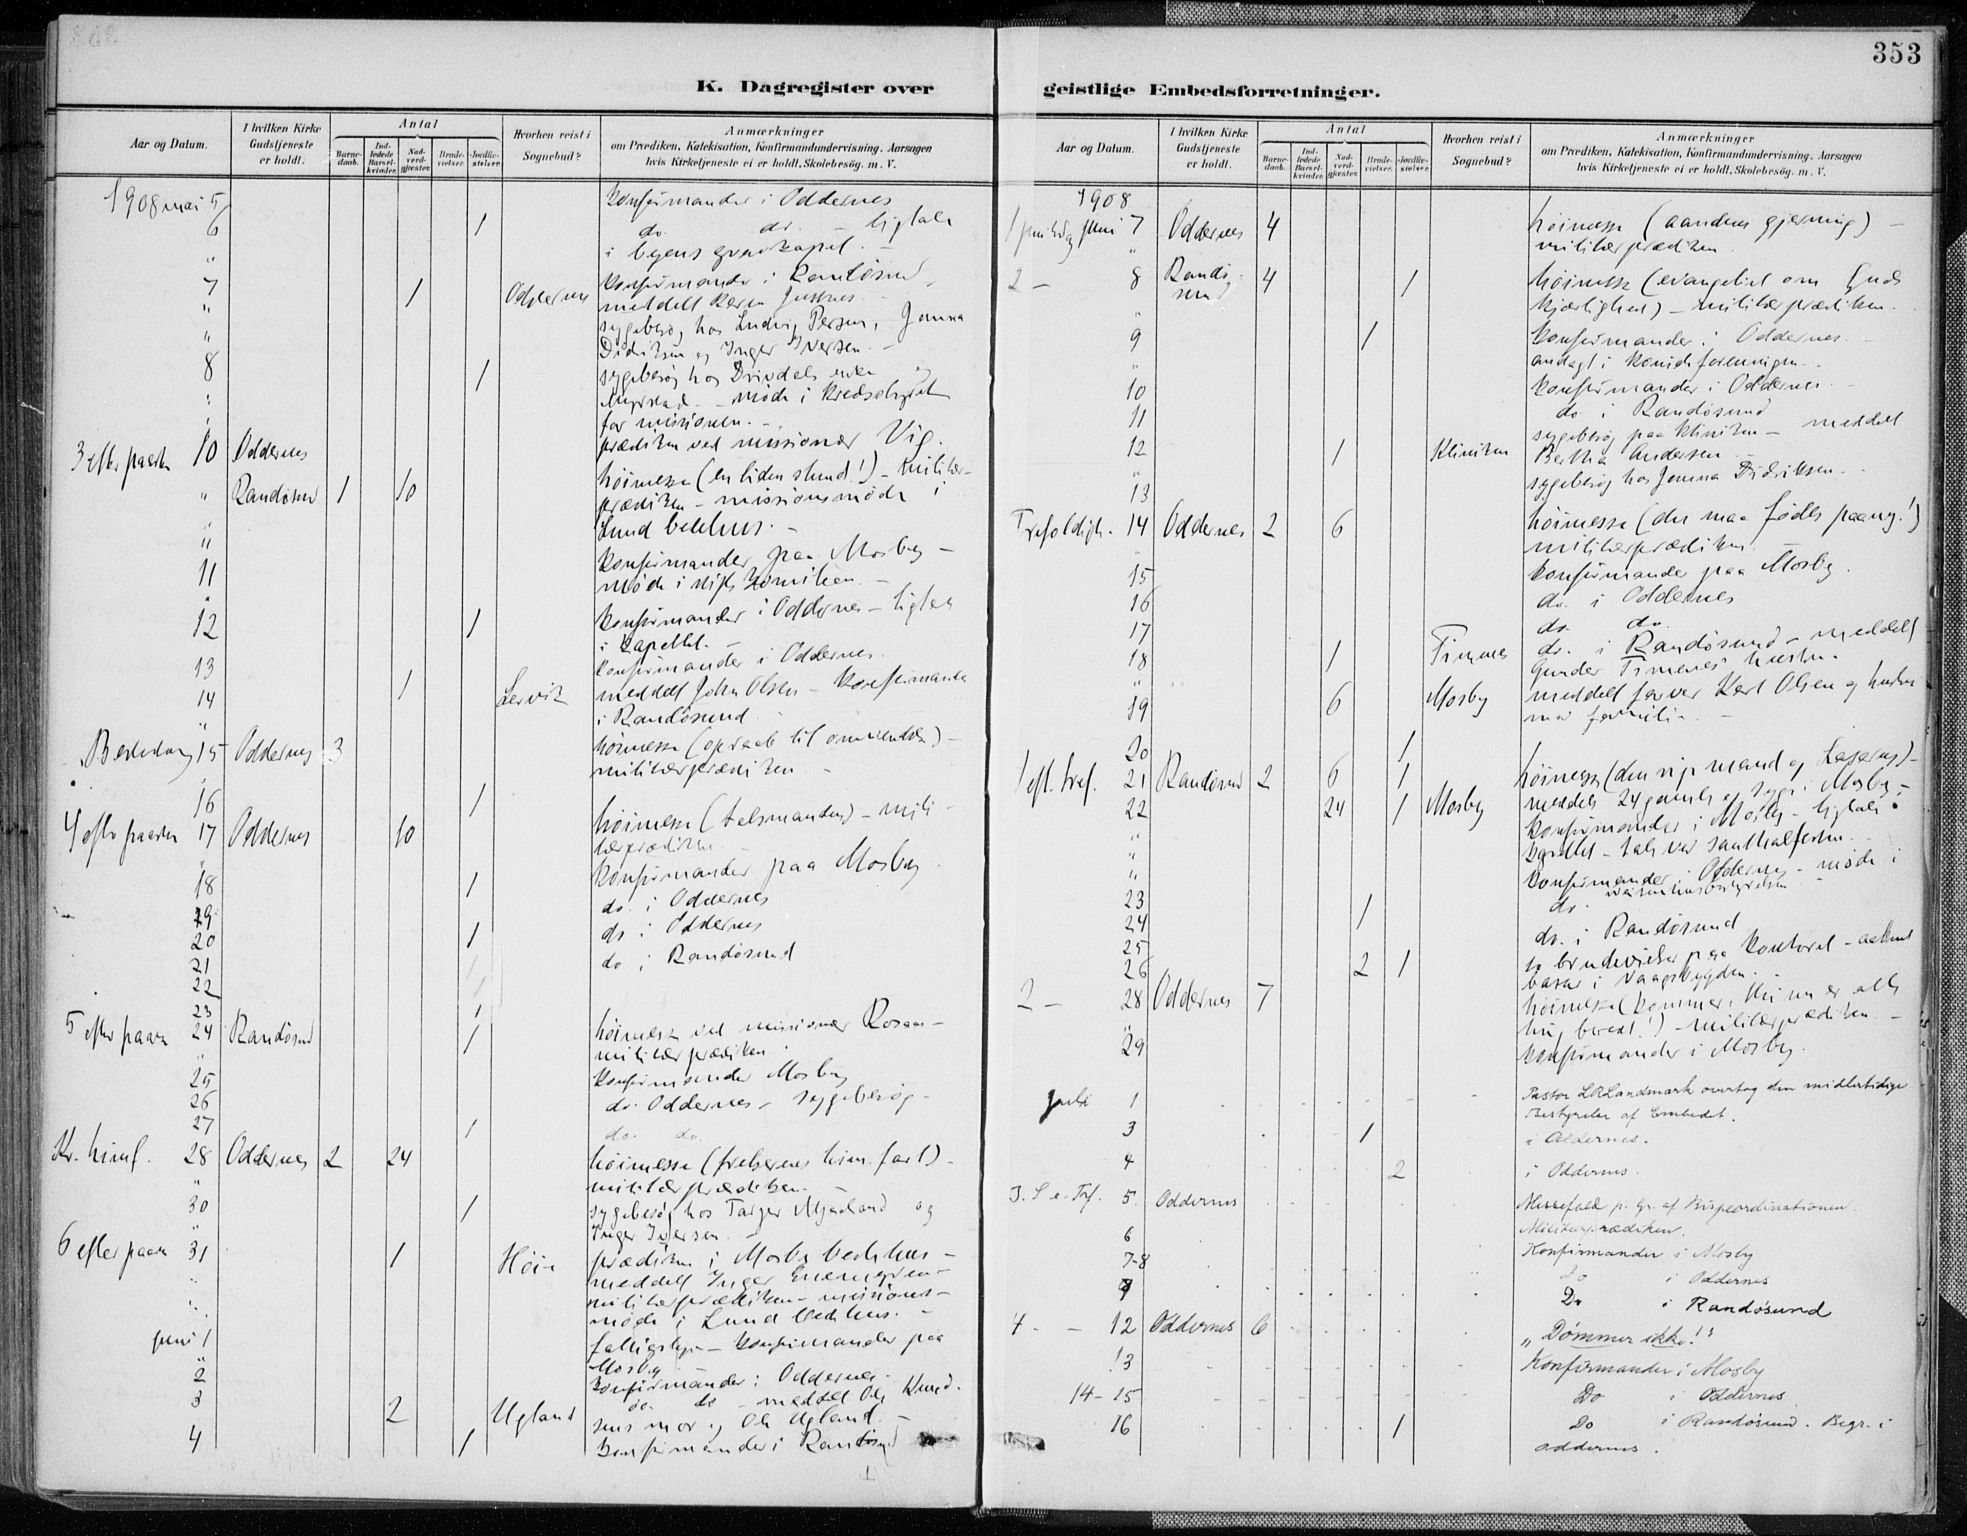 353
K. Dagregister over geistlige Embedsforretninger.
Aar og Datum.
I hvilken Kirke Gudstjeneste er holdt.
Antal
Barnedaab.
Indledede Barselkvinder.
Nadverdgjæster.
Brudevielser.
Jordfæstelser.
Hvorhen reist i Sognebud?
Anmærkninger
om Prædiken, Katekisation, Konfirmandundervisning, Aarsagen
hvis Kirketjeneste ei er holdt, Skolebesøg. m. V.
1908 mai 5 konfirmander i Oddernes
6 1 do. do. - ligtale
" i byens gravkapel. -
7 1 Oddernes konfirmander i Randøsund
meddelt Karen
" sygebesøg hos Ludvig Persen, Jenna
" Didriksen og Inger Iversen. -
8 1 sygebesøg hos Drivdals enke og
- møde i kredsstyret
for missionen. -
3 efter paaske 10 Oddernes prædiken ved missionær Vig.
høimesse (en liden stund!) - militær-
" Randøsund 1 10 prædiken - missionsmøde i
" Lund bedehus. -
" konfirmander paa Mosby -
11 møde i
12 1 konfirmander i Oddernes - ligtale
i kapellet. -
13 konfirmander i Oddernes.
14 1 Lervik meddelt John Olsen - konfirmander
" i Randøsund.
Bededag 15 Oddernes 3 høimesse (opraab til omvendelse) -
militærprædiken. -
16 1
4 efter paaske 17 Oddernes 10 høimesse (talsmanden) - mili-
tærprædiken -
" konfirmander paa Mosby
18 1 do. i Oddernes
19 do i Oddernes
20 1 do i Randøsund
21
22
23 1
5 efter paaske 24 Randøsund 1 høimesse ved missionær Rosaas -
" militærprædiken.
25 konfirmander Mosby
26 do. Oddernes - sygebesøg -
27 1 do. do.
Kr. himf. 28 Oddernes 2 24 høimesse (frelserens him. fart) -
" militærprædiken. -
30 1 sygebesøg hos Targer Mjaaland og
" Inger Iversen. -
6 efter paaske 31 1 Høie prædiken i Mosby bedehus -
" meddelt Inger
militærprædiken - missions-
møde i Lund Bedehus. -
juni 1 - konfirmander paa
" Mosby
2 konfirmander i Oddernes.
3 2 Ugland do. do - meddelt Ole Knud-
sens mor og Ole Ugland. -
4 1 konfirmander i Randøsund
Aar og Datum.
I hvilken Kirke Gudstjeneste er holdt.
Antal
Barnedaab.
Indledede Barselkvinder.
Nadverdgjæster.
Brudevielser.
Jordfæstelser.
Hvorhen reist i Sognebud?
Anmærkninger
om Prædiken, Katekisation, Konfirmandundervisning, Aarsagen
hvis Kirketjeneste ei er holdt, Skolebesøg. m. V.
1908
juni 7 Oddernes 4 høimesse (aandens gjerning) -
" militærprædiken.
2 - 8 Randøsund 4 1 høimesse (evangeliet om Guds
kjærlighed) - militærprædiken.
9 1 konfirmander i Oddernes. -
" andagt i -
10 konfirmander i Oddernes -
11 do i Randøsund
12 1 Kliniken sygebesøg paa kliniken - meddelt
" Bertha Andersen -
13 sygebesøg hos Jenna Didriksen. -
Trefoldigh. 14 Oddernes 2 6 høimesse (der maa fødes paany!)
" militærprædiken. -
15 konfirmander paa Mosby.
16 do. i Oddernes
17 do. do.
18 1 Timnes do. i Randøsund - meddelt
" Gunder Timenes' hustru.
19 6 Mosby meddelt farver Karl Olsen og hustru
med familie. -
20 1
1 eft. tref. 21 Randøsund 2 6 1 høimesse (den rige mand og Lazarus) -
22 24 1 Mosby meddelt 24 gamle og syge i Mosby -
" konfirmander i Mosby - ligtale
" kapellet - tale ved santhalfesten. -
" konfirmander i Oddernes - møde i
23 do.
24 1 do. i Randøsund
25 to brudevielser paa kontoret -
26 2 1 basar i Vaagsbygden. -
2 - 28 Oddernes 7 høimesse (kommer, thi nu er alle
" ting beredt!) - militærprædiken. -
29 konfirmander i Mosby.
Juli 1 Pastor Landmark overtog den midlertidige
Bestyrelse af Embedet.
3 1 i Oddernes.
4 2 i Oddernes.
3. S. e. Tref. 5. Oddernes Messefald p. gr. af Bispeordinationen.
Militærprædiken.
6 Konfirmander i Mosby
7-8 Do i Oddernes
9 Do i Randøsund
4 - - 12 Oddernes 6 "Dømmer ikke!"
13 Konfirmander i Mosby
14-15 Do i Oddernes
16 1 Do i Randøsund. Begr. i
Oddernes.